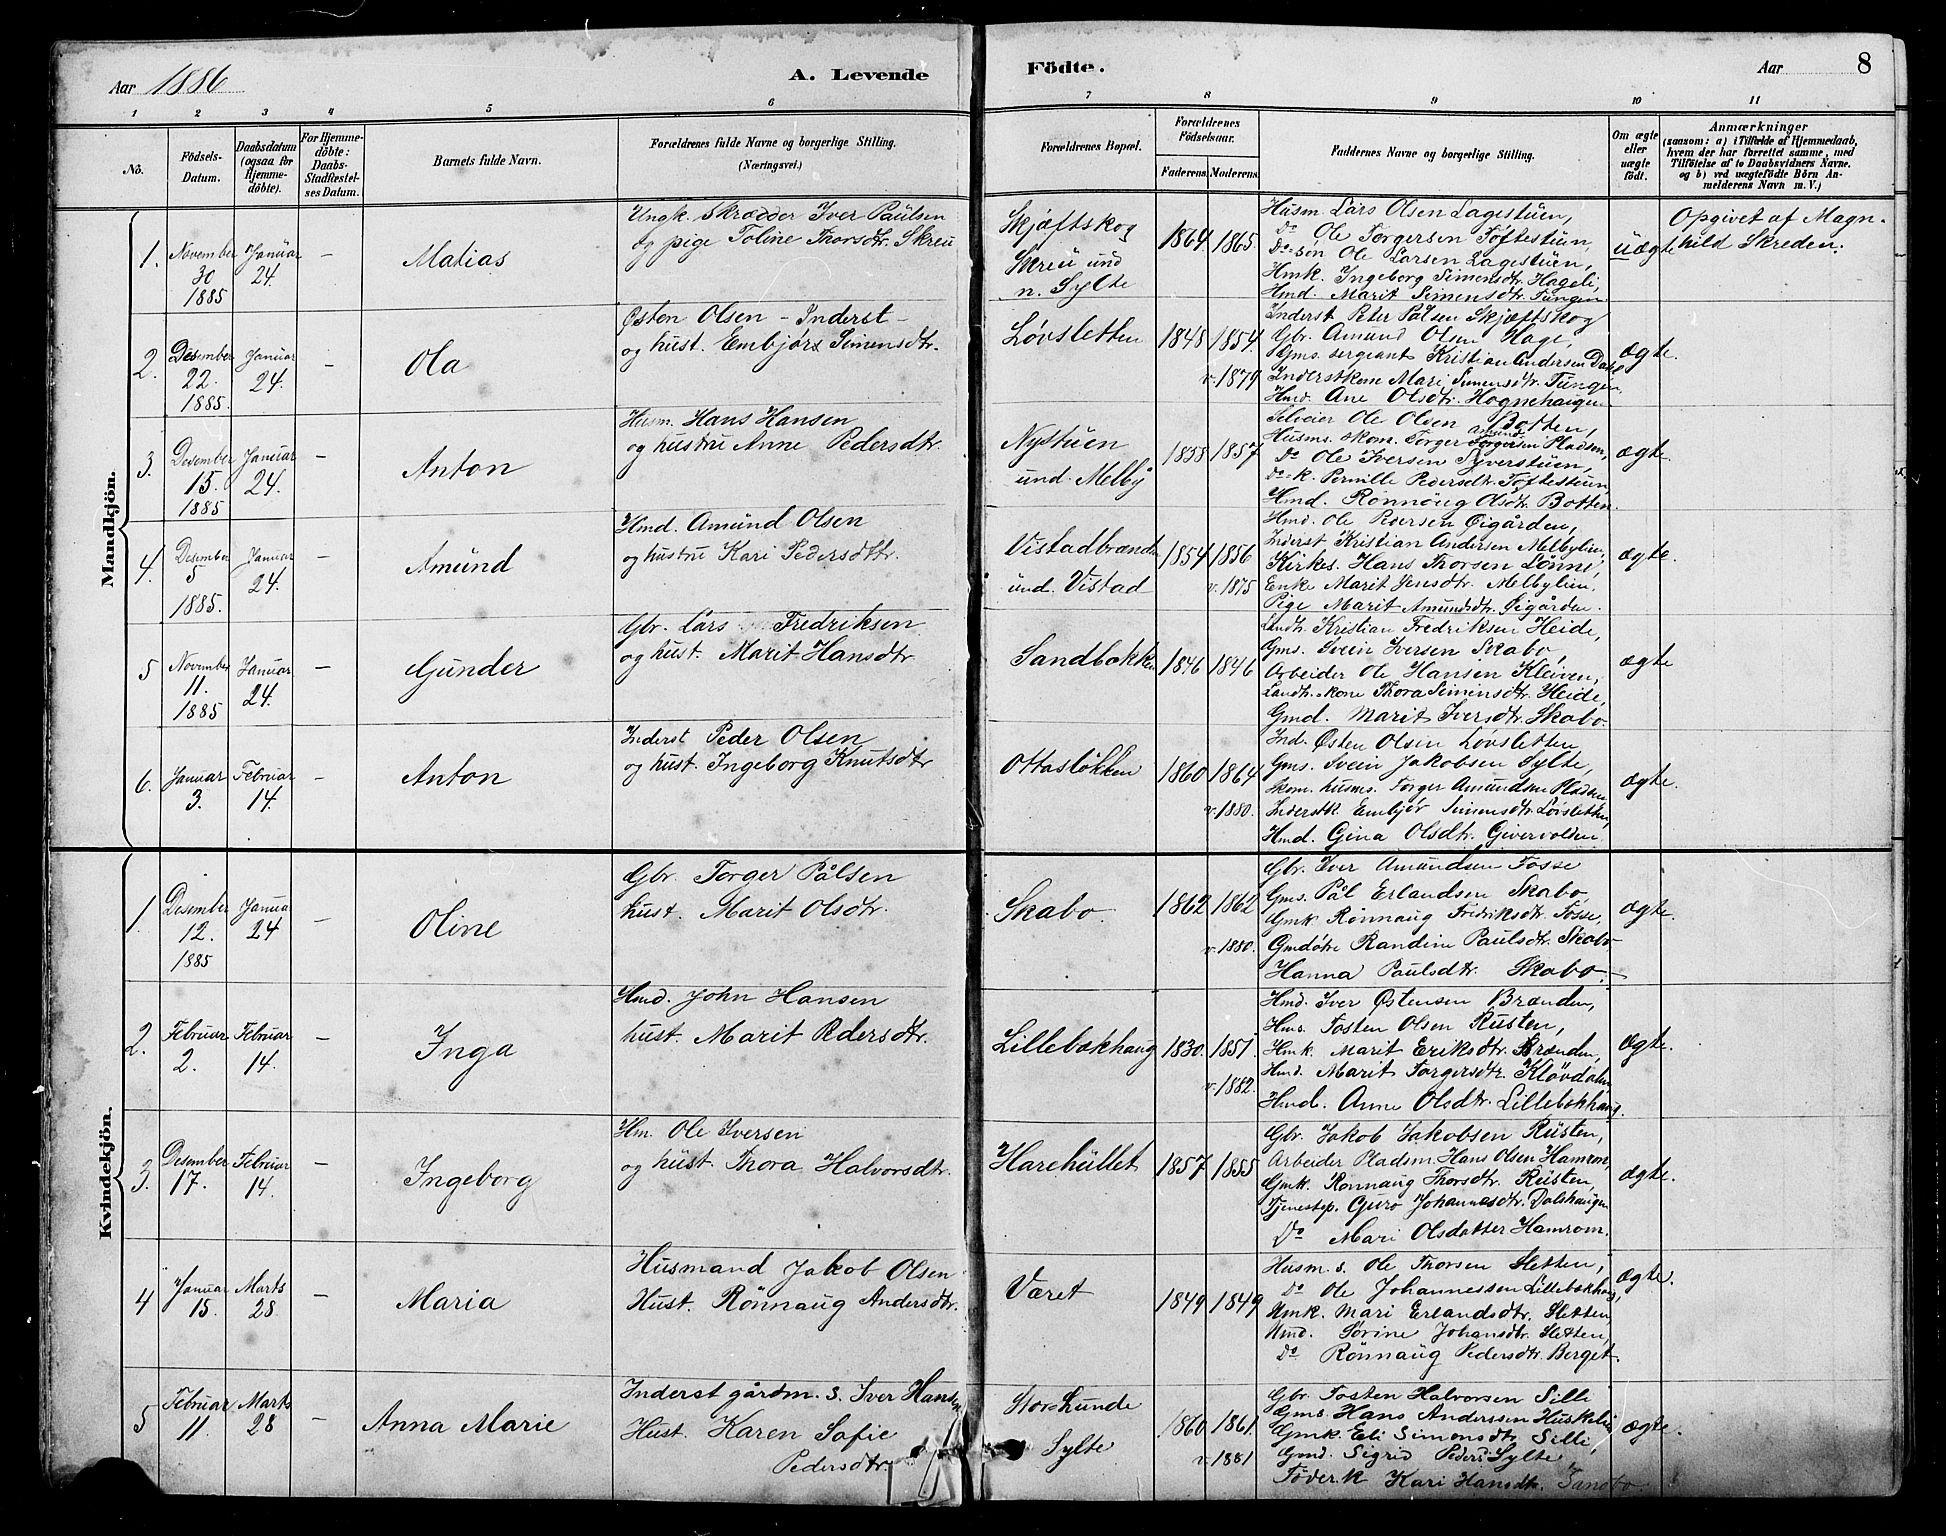 Aar 1886
A. Levende Födte.
Aar
8
1 2 3 4 5 6 7 8 9 10 11
No.
Födsels-Datum.
Daabsdatum (ogsaa för Hjemmedöbte).
For Hjemmedöbte: Daabs-Stadfæstelses Datum.
Barnets fulde Navn.
Forældrenes fulde Navne og borgerlige Stilling. (Næringsvei.)
Forældrenes Bopæl.
Forældrenes Födselsaar.
Faderens. Moderens.
Faddernes Navne og borgerlige Stilling.
Om ægte eller uægte födt.
Anmærkninger
(saasom: a) i Tilfælde af Hjemmedaab,
hvem der har forrettet samme, med
Tilföielse af to Daabsvidners Navne.
og b) ved uægtefödte Börn An-
melderens Navn m. V.)
Mandkjön.
1. November 30 1885
Januar 24.
–
Matias
Ungk. Skrædder Iver Paulsen
og pige Toline Thorsdtr. Skreu
Skjæftskog
Skreu und
n. Sylte
1864 1865
Husm Lars Olsen Lagestuen,
Do Ole Torgersen Tøftestuen,
Do-søn Ole Larsen Lagestuen,
Hmk. Ingeborg Simensdtr. Hageli,
Hmd. Marit Simensdtr. Tungen
uægte
Opgivet af Magn-
hild Skreden.
2. Desember 22. 1885.
Januar 24.
–
Ola
Østen Olsen - Inderst -
og hust. Embjør Simensdtr.
Løvsletten
1848 1854.
v. 1879
Inderst Peter Pålsen Skjæftskog
Gbr. Amund Olsen Hage,
Gms. sergeant Kristian Andersen
Inderstkone Mari Simensdtr. Tungen
Hmd. Ane Olsdtr. Hognehaugen
ægte
3. Desember 15. 1885
Januar 24.
–
Anton
Husm. Hans Hansen
og hustru Anne Pedersdtr.
Nystuen
und. Melby
1858 1857
Selveier Ole Olsen Botten,
Husms. skom. Torger Amunds Pladsen,
Do Ole Iversen Syverstuen,
Do-k. Pernille Pedersdtr. Tøftestuen
Hmd. Rønnaug Olsdtr Botten
ægte
4. Desember 5 1885.
Januar 24.
–
Amund
Hmd. Amund Olsen
og hustru Kari Pedersdtr.
Vistadbrænden
und. Vistad
1854 1856
v. 1875
Hmd. Ole Pedersen Øigården,
Inderst Kristian Andersen Melbylien,
Kirkes. Hans Thorsen Lønne,
Enke Marit Jensdtr. Melbylien,
Pige Marit Amundsdtr. Øigården.
ægte.
5 November 11. 1885
Januar 24.
–
Gunder
Gbr. Lars Fredriksen
og hust. Marit Hansdtr.
Sandbakken
1846 1846
Landh. Kristian Fredriksen Heide,
Gms. Svein Iversen Skabo,
Arbeider Ole Hansen Kleiven,
Landh.-kone Thora Simensdtr. Heide,
Gmd. Marit Iversdtr. Skabo.
ægte
6. Januar 3.
Februar 14.
–
Anton
Inderst Peder Olsen
og hust. Ingeborg Knutsdtr
Ottasløkken
1860 1864
v. 1880.
Ind. Østen Olsen Løvsletten,
Gms. Svein Jakobsen Sylte,
Skom. husms. Torger Amundsen Pladsen
Inderstk. Embjør Simensdtr. Løvsletten,
Hmd. Gina Olsdtr. Givervolden
ægte.
Kvindekjön.
1. Desember 12. 1885
Januar 24
–
Oline
Gbr. Torger Pålsen
hust. Marit Olsdtr.
Skabo.
1862 1862
v. 1880.
Gbr. Iver Amundsen Fosse
Gms. Pål Erlandsen Skabo,
Gmk Rønnaug Fredriksdtr. Fosse,
Gmdøtre Randine Paulsdtr. Skabo
Hanna Paulsdtr Skabo.
ægte.
2. Februar 2.
Februar 14.
–
Inga
Hmd. John Hansen
hust. Marit Pedersdtr.
Lillebækhaug
1830. 1851.
v. 1882.
Hmd. Iver Østensen Brænden,
Hms. Tosten Olsen Rusten,
Hmk. Marit Eriksdtr. Brænden,
Hmd. Marit Torgersdtr. Kløvdalen
Hmd. Anne Olsdtr. Lillebækhaug.
ægte.
3. Desember 17.
Februar 14.
–
Ingeborg
Hm. Ole Iversen
og hust. Thora Halvorsdtr.
Harehullet
1857 1855
Gbr. Jakob Jakobsen Rusten,
Arbeider Pladsm. Hans Olsen Hamrom,
Gmk. Rønnaug Thorsdtr. Rusten,
Tjenestep. Guro Johannesdtr. Dalshaugen
Do Mari Olsdatter Hamrom.
ægte.
4 Januar 15.
Marts 28
–
Maria
Husmand Jakob Olsen
Hust. Rønnaug Andersdtr.
Været
1849 1849
Husm. s. Ole Thorsen Sletten,
Do Ole Johannessen Lillebækhaug,
Hmk. Mari Erlandsdtr. Sletten,
Hmd. Sørine Johansdtr. Sletten,
Do Rønnaug Pedersdtr. Berget.
ægte.
5 Februar 11.
Marts 28
–
Anna Marie
Inderst gårdm. s. Iver Hansen
Hust. Karen Sofie
Pedersdtr.
Stor-Lunde
Sylte
1860 1861.
v. 1881
Gbr. Tosten Halvorsen Silli
Gms. Hans Anderssen Huskelien
Gmk. Eli Simonsdtr Silli
Gmd. Sigrid Peders Sylte
Føder.k Kari Hansdtr. Sandbo.
ægte.